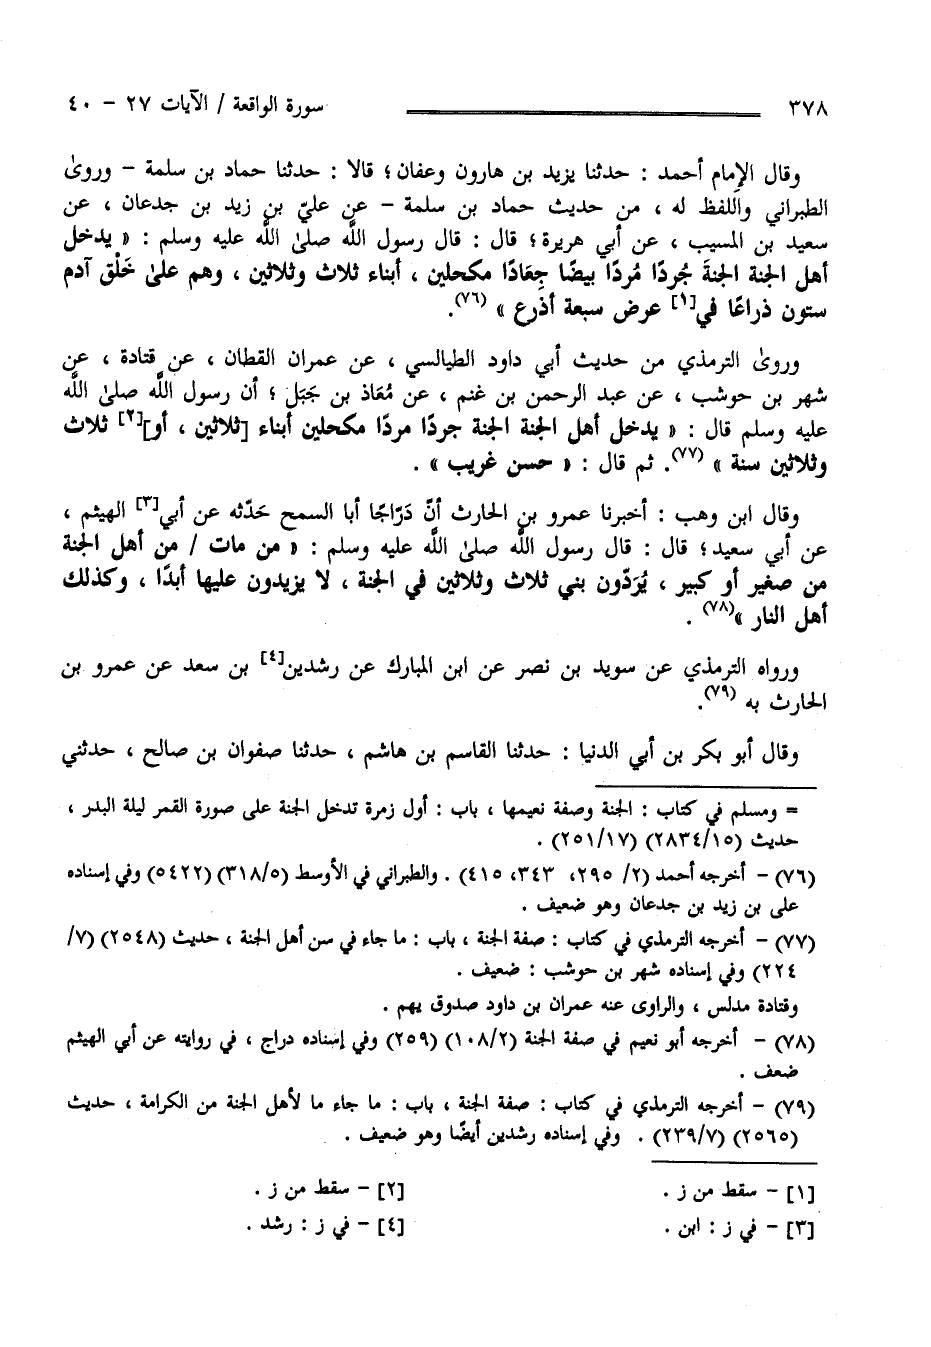 ٣٧٨ سورة الواقعة / الآيات ٢٧ - ٤٠
وقال الإمام أحمد : حدثنا يزيد بن هارون وعفان ؛ قالا : حدثنا حماد بن سلمة - وروىٰ
الطبراني واللفظ له ، من حديث حماد بن سلمة - عن عليّ بن زيد بن جدعان ، عن
سعيد بن المسيب ، عن أبي هريرة ؛ قال : قال رسول اللَّه صلىٰ اللَّه عليه وسلم : « يدخل
أهل الجنة الجنةَ جُردًا مُردًا بيضًا جِعَادًا مكحلين ، أبناء ثلاث وثلاثين ، وهم علىٰ خَلْق آدم
ستون ذراعًا في[١] عرض سبعة أذرع » (٧٦).
وروىٰ الترمذي من حديث أبي داود الطيالسي ، عن عمران القطان ، عن قتادة ، عن
شهر بن حوشب ، عن عبد الرحمن بن غنم ، عن مُعَاذ بن جَبَل ؛ أن رسول اللَّه صلىٰ اللَّه
عليه وسلم قال : « يدخل أهل الجنة الجنة جردًا مردًا مكحلين أبناء [ثلاثين ، أو][٢] ثلاث
وثلاثين سنة » (٧٧). ثم قال : « حسن غريب » .
وقال ابن وهب : أخبرنا عمرو بن الحارث أنّ دَرّاجًا أبا السمح حَدّثه عن أبي[٣] الهيثم ،
عن أبي سعيد ؛ قال : قال رسول اللَّه صلىٰ اللَّه عليه وسلم : « من مات / من أهل الجنة
من صغير أو كبير ، يُرَدّون بني ثلاث وثلاثين في الجنة ، لا يزيدون عليها أبدًا ، وكذلك
أهل النار »(٧٨) .
ورواه الترمذي عن سويد بن نصر عن ابن المبارك عن رشدين[٤] بن سعد عن عمرو بن
الحارث به (٧٩).
وقال أبو بكر بن أبي الدنيا : حدثنا القاسم بن هاشم ، حدثنا صفوان بن صالح ، حدثني
= ومسلم في كتاب : الجنة وصفة نعيمها ، باب : أول زمرة تدخل الجنة على صورة القمر ليلة البدر ،
حديث (٢٨٣٤/١٥) (٢٥١/١٧) .
(٧٦) - أخرجه أحمد (٢/ ٢٩٥، ٣٤٣، ٤١٥) . والطبراني في الأوسط (٣١٨/٥) (٥٤٢٢) وفي إسناده
على بن زيد بن جدعان وهو ضعيف .
(٧٧) - أخرجه الترمذي في كتاب : صفة الجنة ، باب : ما جاء في سن أهل الجنة ، حديث (٢٥٤٨) (٧/
٢٢٤) وفي إسناده شهر بن حوشب : ضعيف .
وقتادة مدلس ، والراوى عنه عمران بن داود صدوق يهم .
(٧٨) - أخرجه أبو نعيم في صفة الجنة (١٠٨/٢) (٢٥٩) وفي إسناده دراج ، في روايته عن أبي الهيثم
ضعف .
(٧٩) - أخرجه الترمذي في كتاب : صفة الجنة ، باب : ما جاء ما لأهل الجنة من الكرامة ، حديث
(٢٥٦٥) (٢٣٩/٧) . وفي إسناده رشدين أيضًا وهو ضعيف .
[١] - سقط من ز . [٢] - سقط من ز .
[٣] - في ز : ابن . [٤] - في ز : رشد .